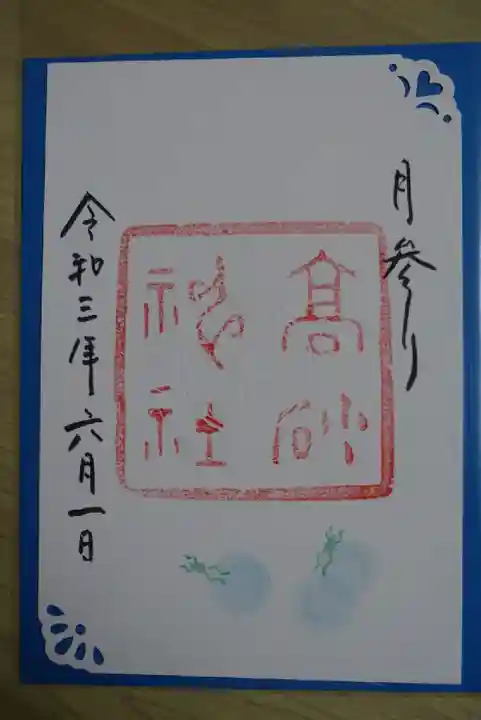 月参り
髙砂
神社
令和三年六月一日